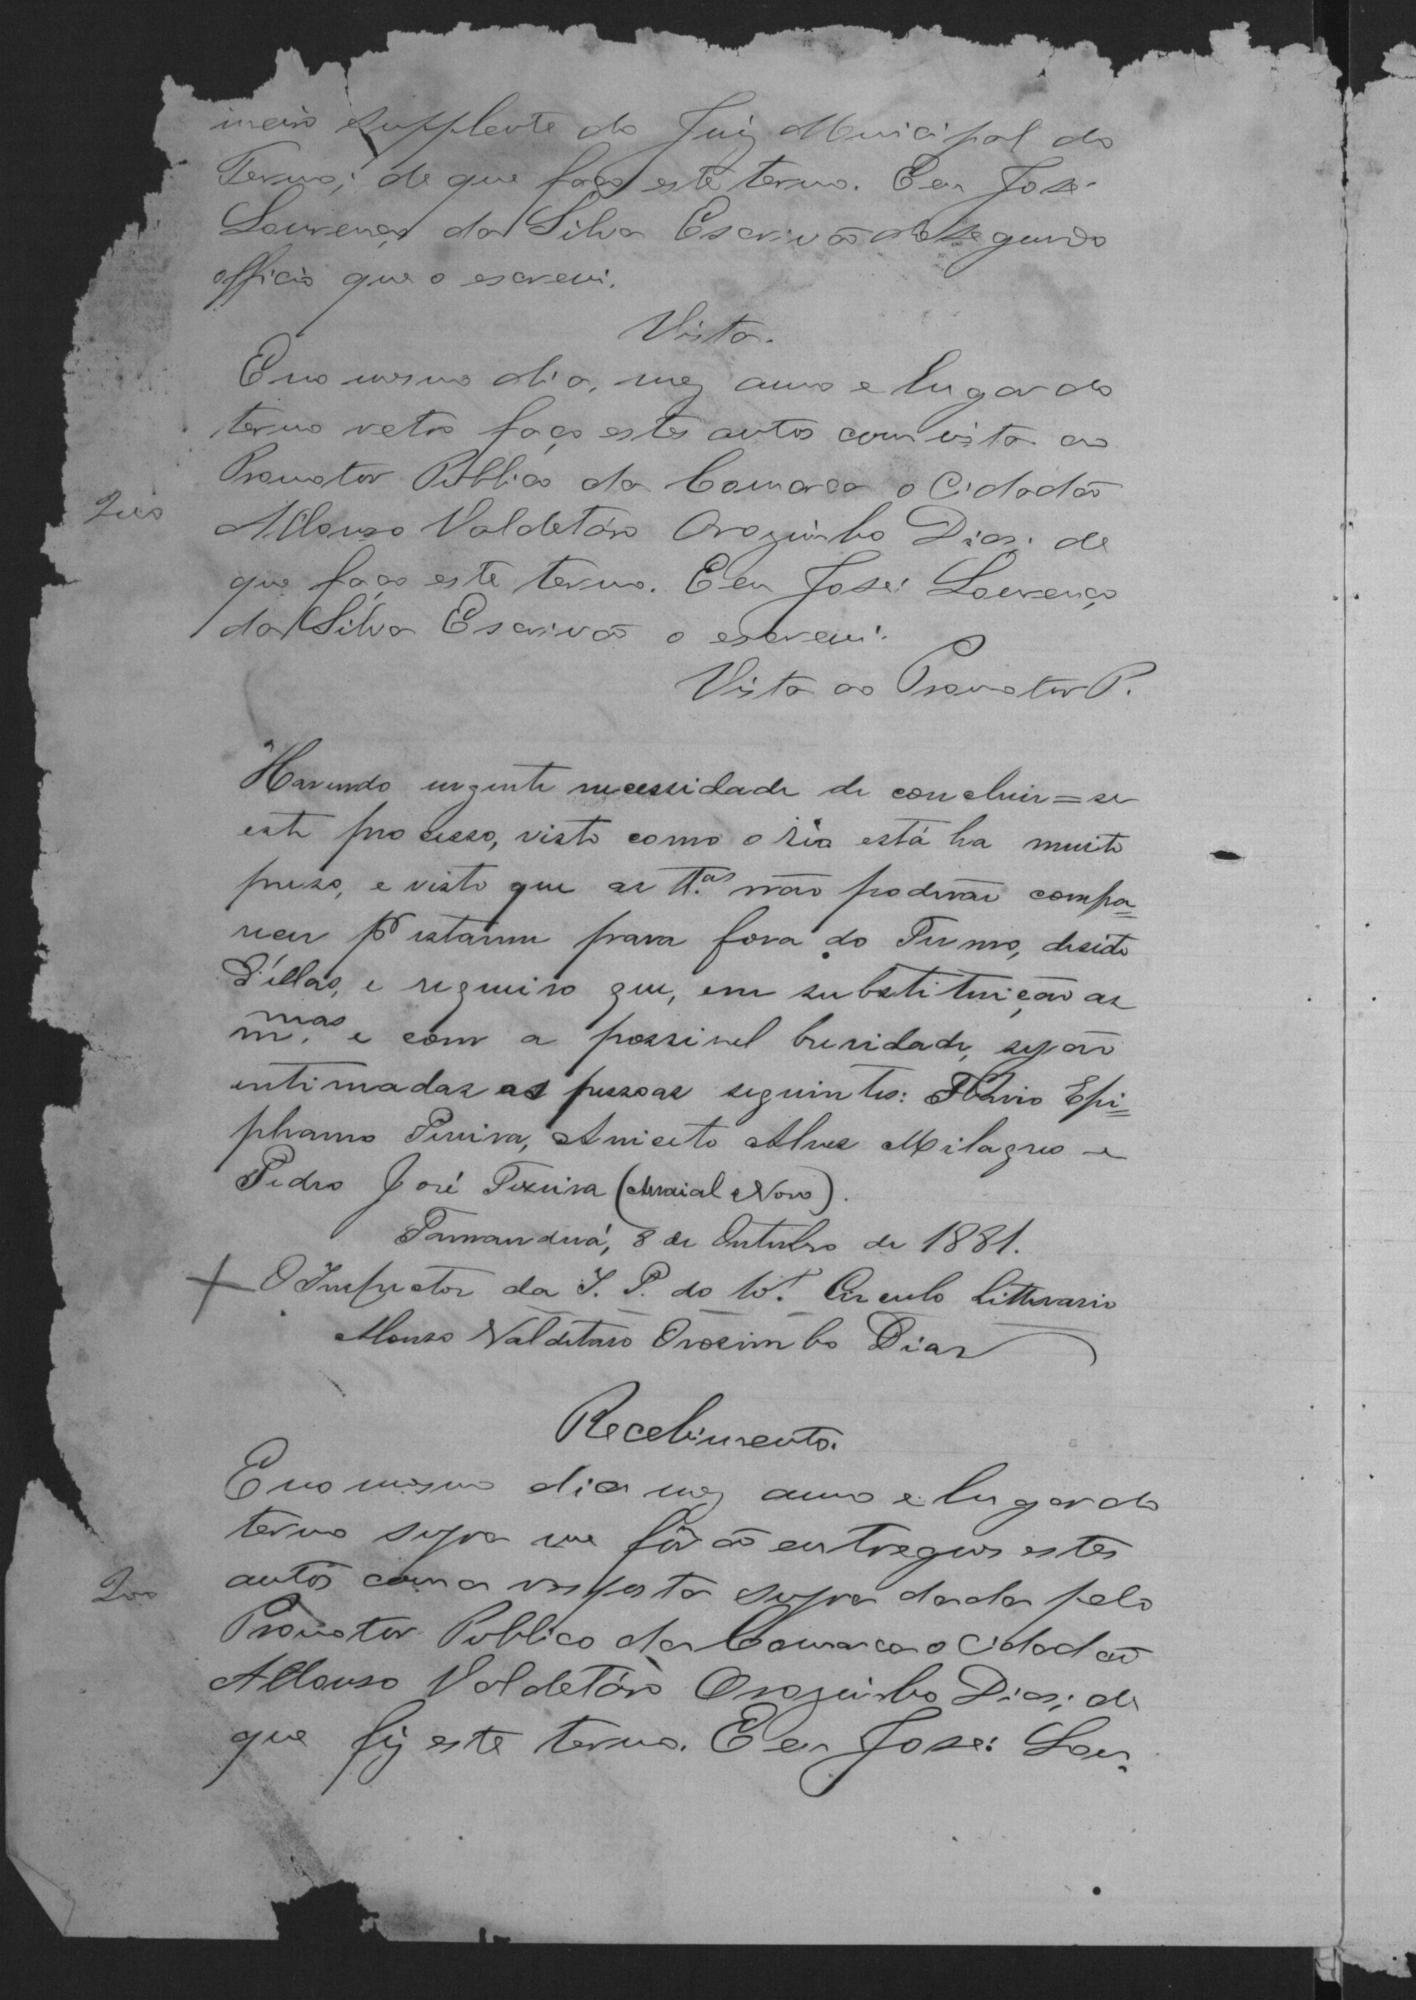 meiro supplente do Juiz Municipal do
Termo; de que faço este termo. E eu José
Lourenço da Silva Escrivão do segundo
officio que o escrevi.
Vista.
E no mesmo dia, mez anno e lugar do
termo retro faço estes autos com vista ao
Promotor Publico da Comarca o Cidadão
Allonso Valdetáro Orozimbo Dias; de
que faço este termo. E eu José Lourenço
da Silva Escrivão o escrevi.
Vista ao Promotor P.
Havendo urgente necessidade de concluir=se
este processo, visto como o réo está ha muito
prezo, e visto que as tt.as não poderão compa=
recer pr estarem para fora do Termo, desisto
d'éllas, e requeiro que, em substituição as
m.mas e com a possivel brevidade, sejão
intimadas as pessoas seguintes: Flavio Epi=
phanio Pereira, Aniceto Alves Milagres e
Pedro José Texeira (Arraial Novo).
Tamanduá, 8 de Outubro de 1881.
O Inspector da I. P. do 10.º Circulo Litterario
Alonso Valdetaro Orosimbo Dias
Recebimento.
E no mesmo dia mez anno e lugar do
termo supra me fôrão entregues estes
autos com a resposta supra dada pelo
Promotor Publico da Comarca o Cidadão
Allonso Valdetáro Orozimbo Dias; de
que fiz este termo. E eu José Lou-